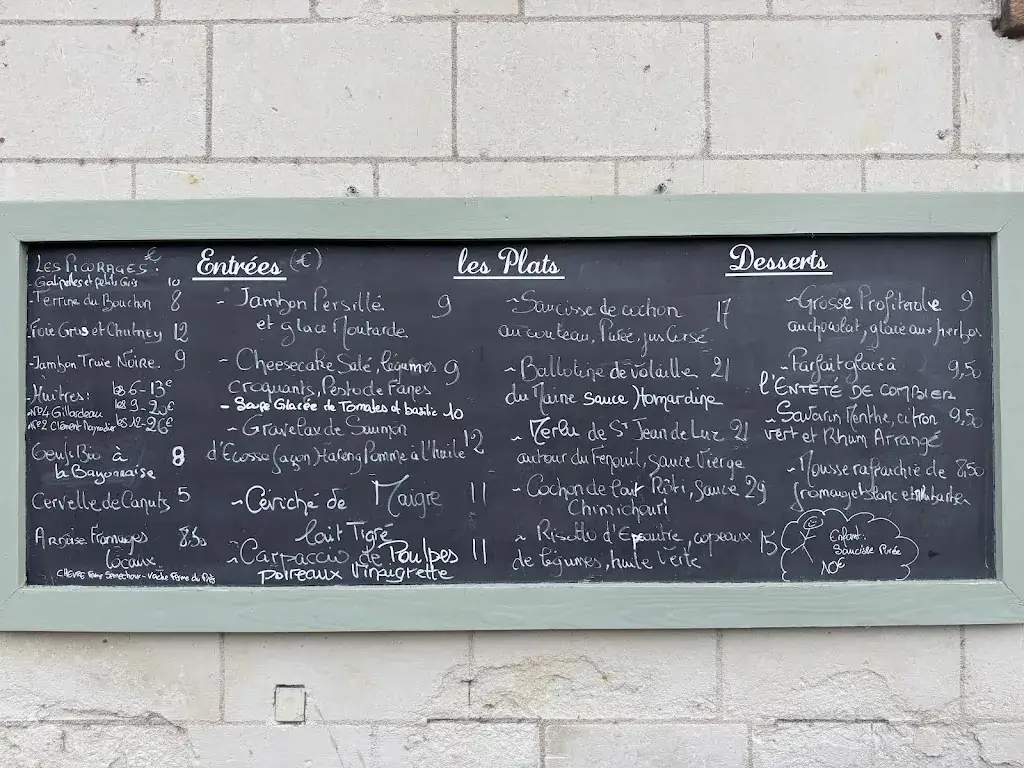 Les Picorages : €
- Galipettes et petits Gris 10
- Terrine du Bouchon 8
- Foie Gras et Chutney 12
- Jambon Truie Noire 9
Huîtres : les 6-13€
N°4 Gillardeau les 9-20€
N°2 Clément les 12-26€
Oeufs Bio à 8
la Bayonnaise
Cervelle de Canuts 5
Ardoise Fromages 8,50
locaux
Entrées (€)
- Jambon Persillé 9
et glace Moutarde
- Cheesecake Salé, légumes 9
croquants, Pesto de Fanes
- Soupe Glacée de Tomates et basilic 10
- Gravelax de Saumon
d'Ecosse façon Hareng Pomme à l'huile 12
- Céviché de Maigre 11
lait Tigré
- Carpaccio de Poulpes 11
poireaux Vinaigrette
les Plats
- Saucisse de cochon 17
au couteau, Purée, jus Corsé
- Ballotine de volaille 21
du Maine sauce Homardine
- Merlu de St Jean de Luz 21
autour du Fenouil, sauce Vierge
- Cochon de lait Rôti, sauce 29
Chimichouri
- Risotto d'Epeautre, copeaux 15
de légumes, huile Verte
Desserts
- Grosse Profiterole 9
au chocolat, glace aux herbes
- Parfait glacé à 9,50
l'ENTÊTÉ DE COMBIER
- Savarin Menthe, citron 9,50
vert et Rhum Arrangé
- Mousse rafraîchie de 8,50
fromage blanc et rhubarbe
Enfant :
Saucisse Purée
10€